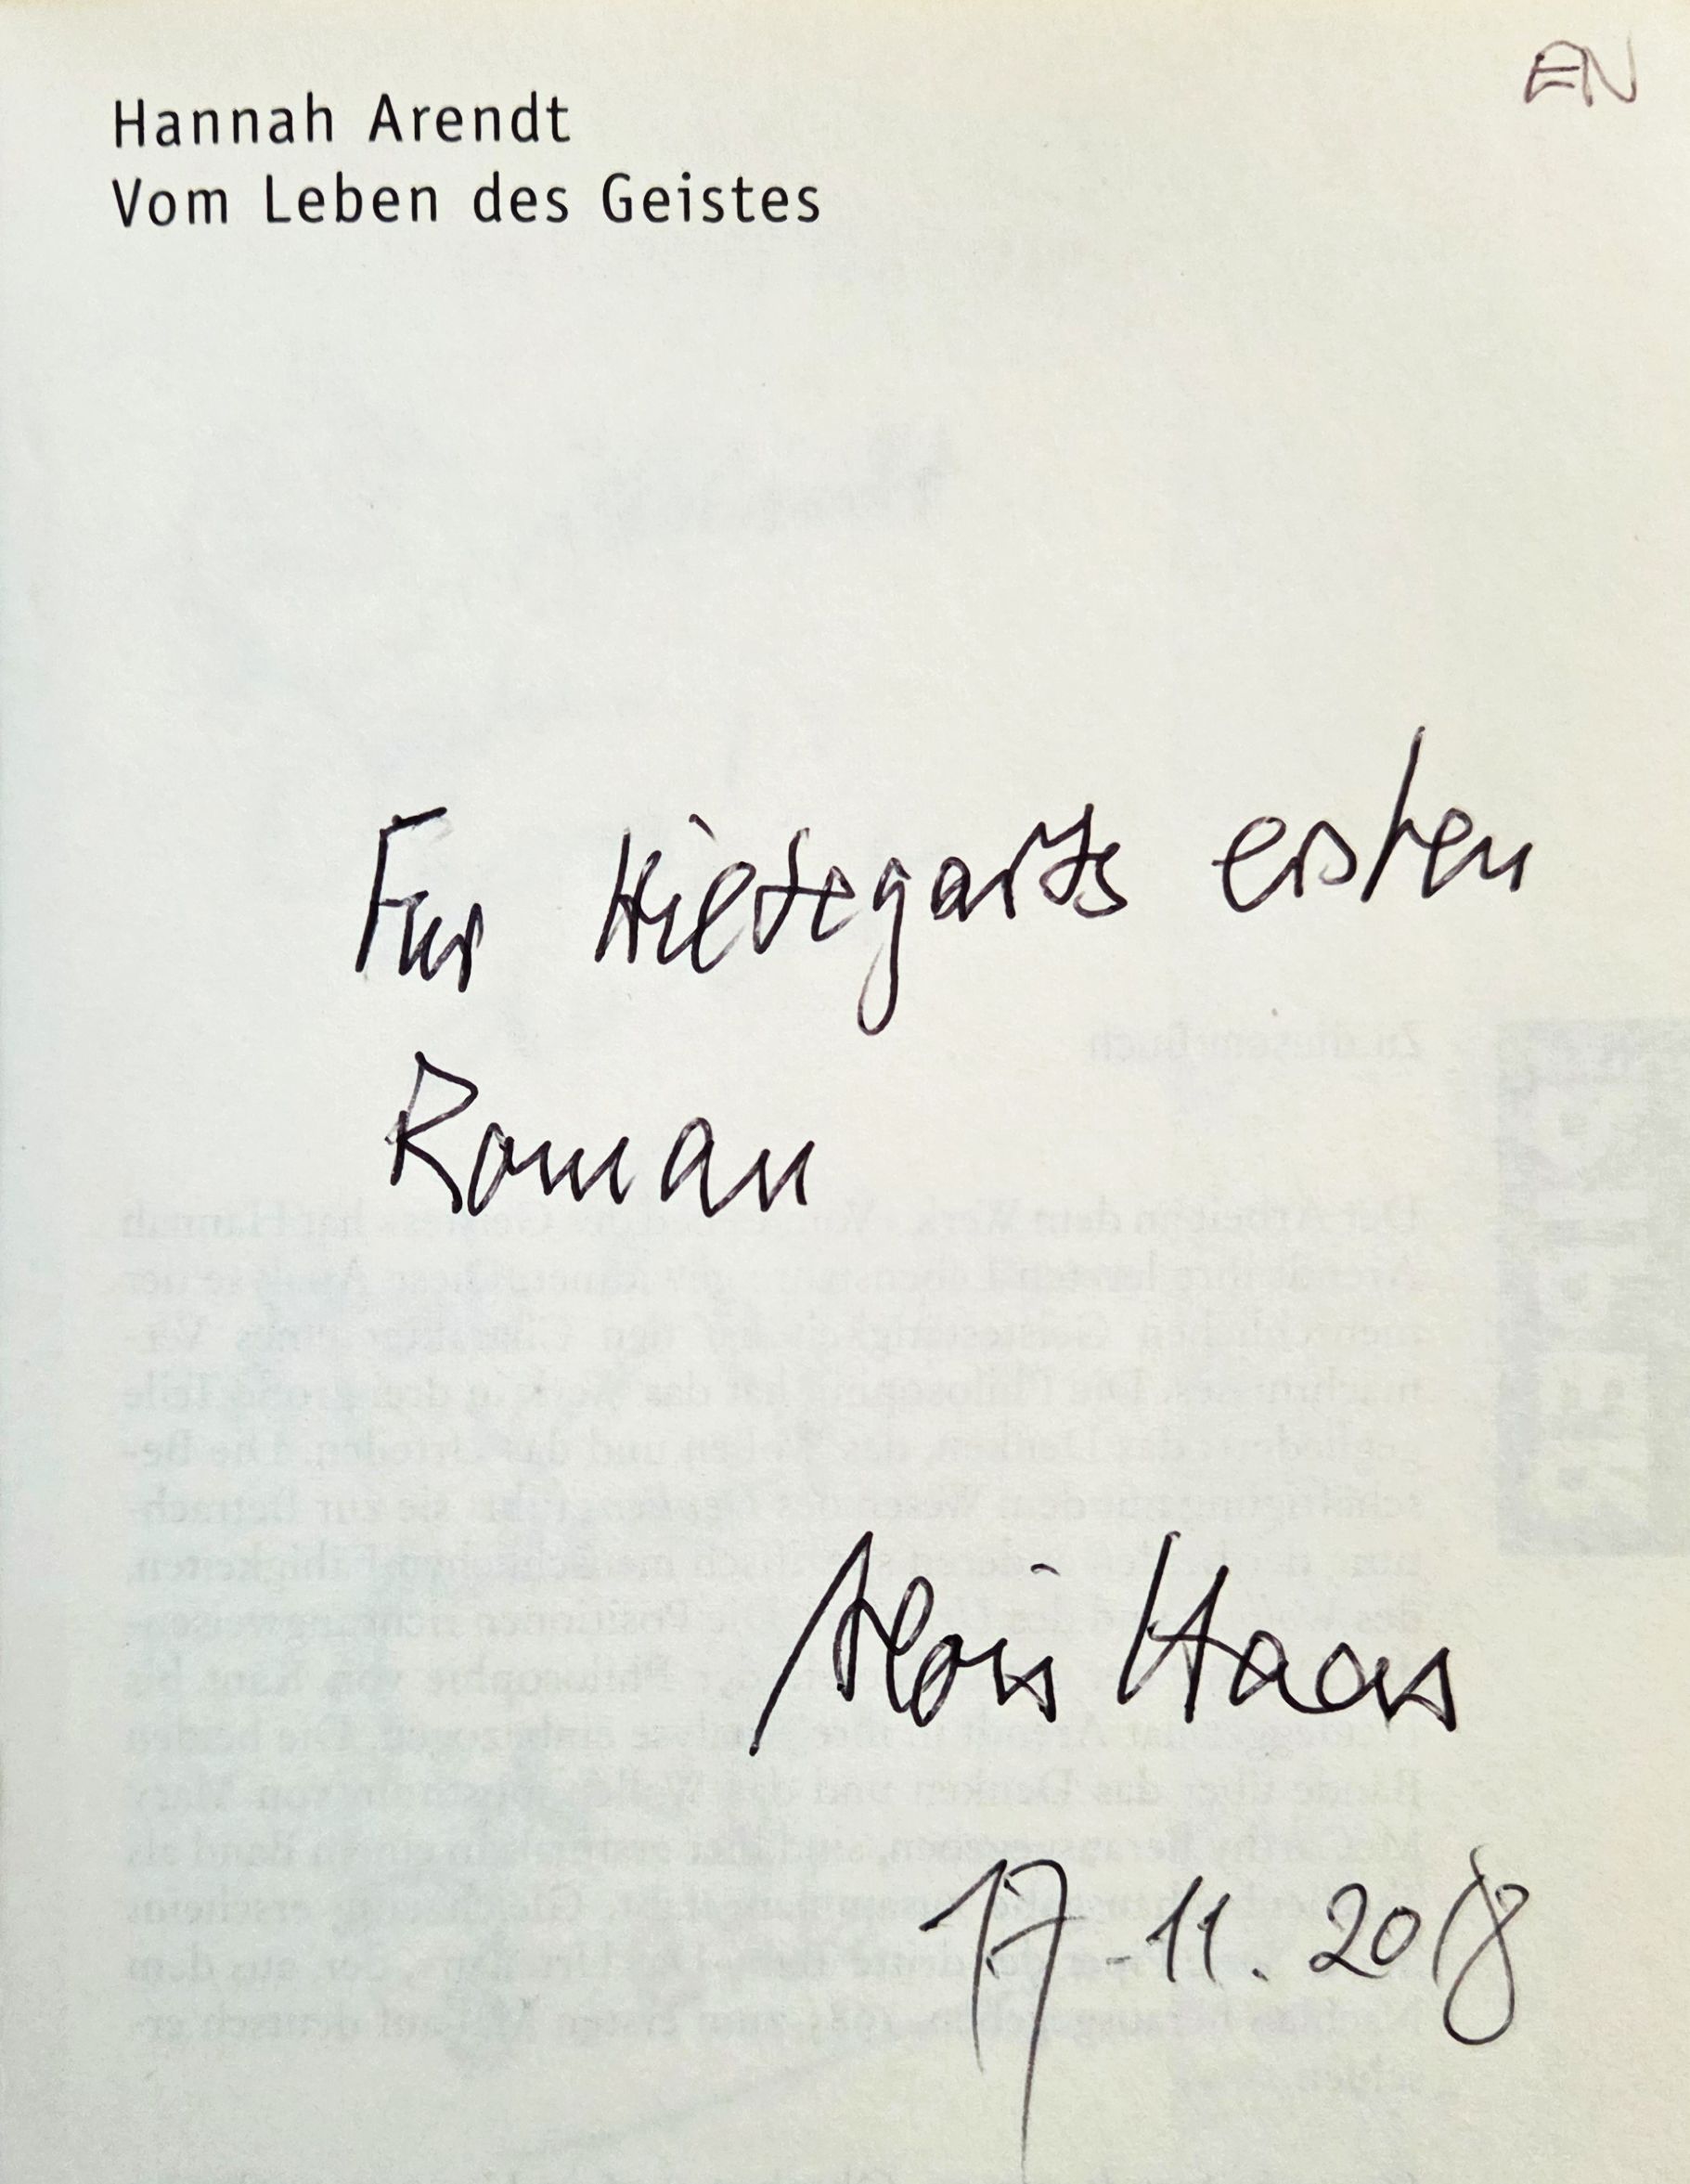 EN
Hannah Arendt
Vom Leben des Geistes
Für Hildegards ersten
Roman
Alois Haas
17-11. 2018